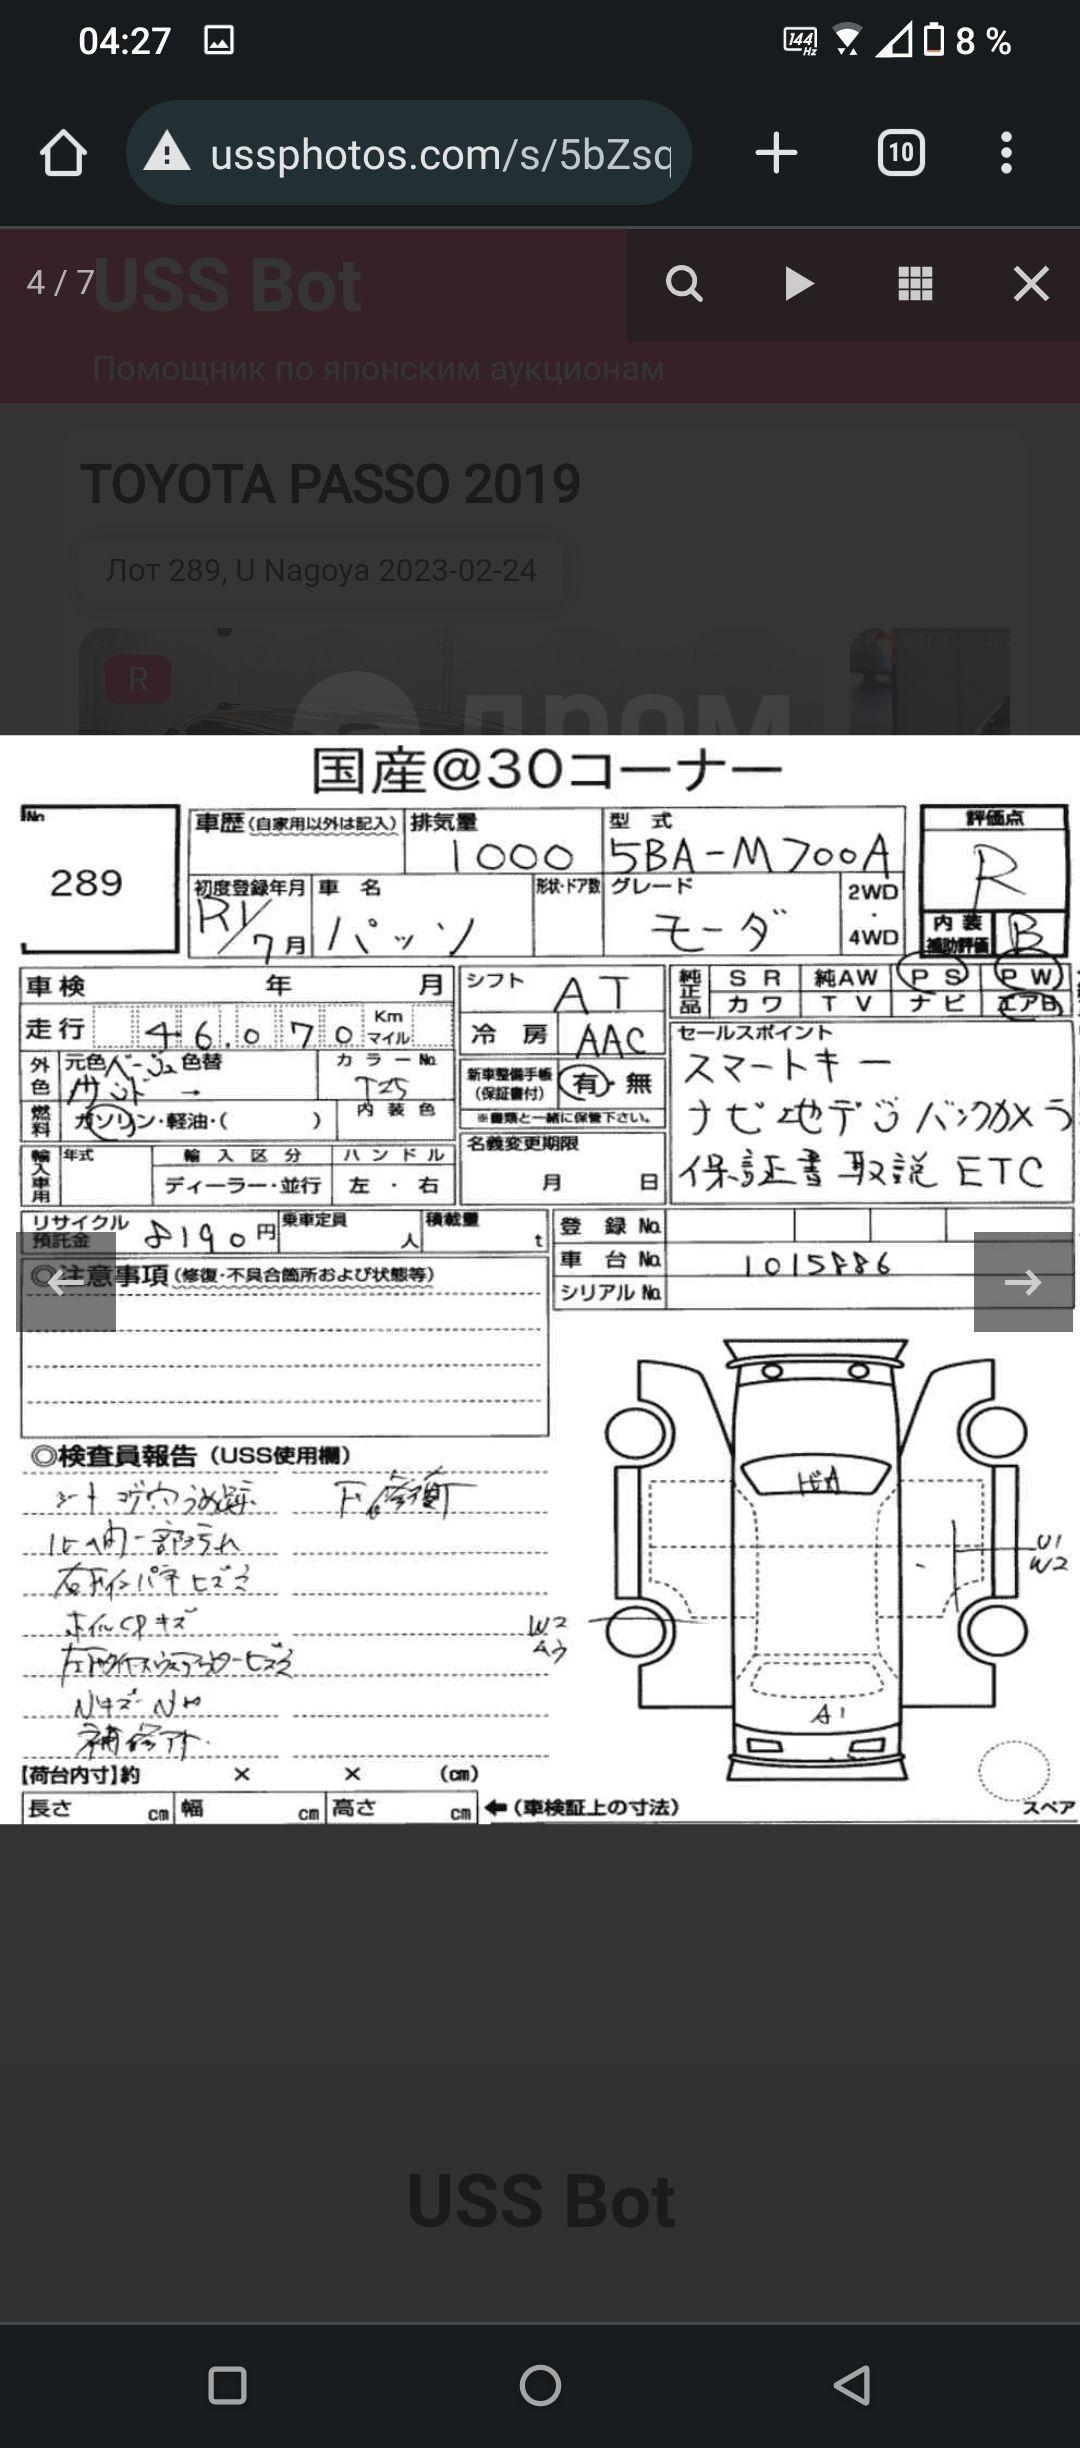 04:27
144 Hz 8 %
ussphotos.com/s/5bZsq
10
4 / 7
USS Bot
Помощник по японским аукционам
TOYOTA PASSO 2019
Лот 289, U Nagoya 2023-02-24
R
дром
国産@30コーナー
No.
289
車歴(自家用以外は記入) 排気量 1000 型式 5BA-M700A
評価点 R
初度登録年月 R1/7月 車名 パッソ 形状・ドア数 グレード モーダ 2WD・4WD
内装補助評価 B
車検 年 月
シフト AT
純正品 SR 純AW PS PW
カワ TV ナビ エアB
走行 46.070 Km マイル
冷房 AAC
セールスポイント
外色 元色 色替 → カラーNo. T25
スマートキー
新車整備手帳(保証書付) 有・無
※書類と一緒に保管下さい。
ナビ地デジバックカメラ
燃料 ガソリン・軽油・( ) 内装色
保証書 取説 ETC
名義変更期限
月 日
輸入車用 年式 輸入区分 ハンドル
ディーラー・並行 左・右
リサイクル預託金 8190円 乗車定員 人 積載量 t
登録No.
車台No. 1015886
シリアルNo.
◎注意事項(修復・不具合箇所および状態等)
◎検査員報告(USS使用欄)
U1
W2
W2
A1
【荷台内寸】約 × × (cm)
長さ cm 幅 cm 高さ cm ←(車検証上の寸法)
スペア
USS Bot